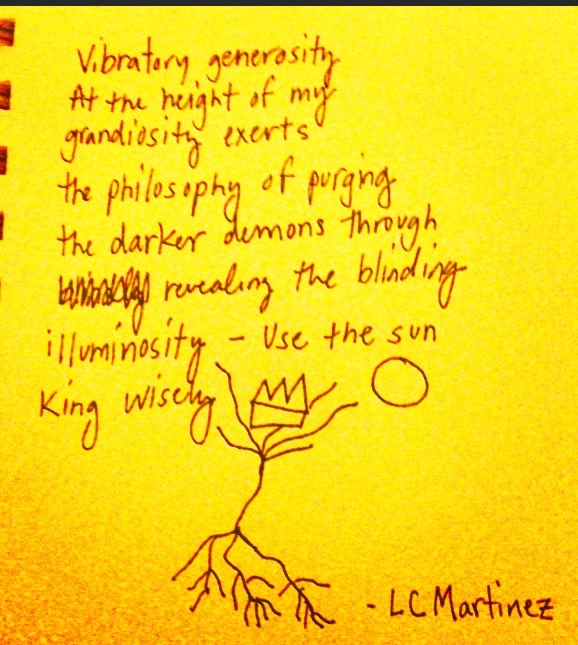 Vibratory generosity
At the height of my
grandiosity exerts
the philosophy of purging
the darker demons through
revealing the blinding
illuminosity - Use the sun
King wisely
- LC Martinez